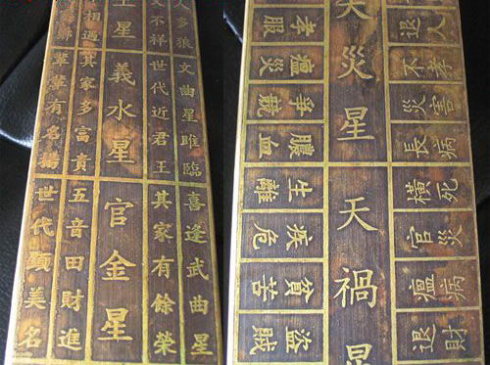 人多狼
文不祥
土星
相遇
文曲星雎臨
世代近君王
義水星
其家多富貴
輩輩有名揚
喜逢武曲星
其家有餘榮
官金星
五音田財進
世代顯美名
退人
不孝
災害
長病
橫死
官災
瘟病
退財
天災星
天禍星
孝服
瘟災
爭
膿血
生離
疾危
貧苦
盜賊